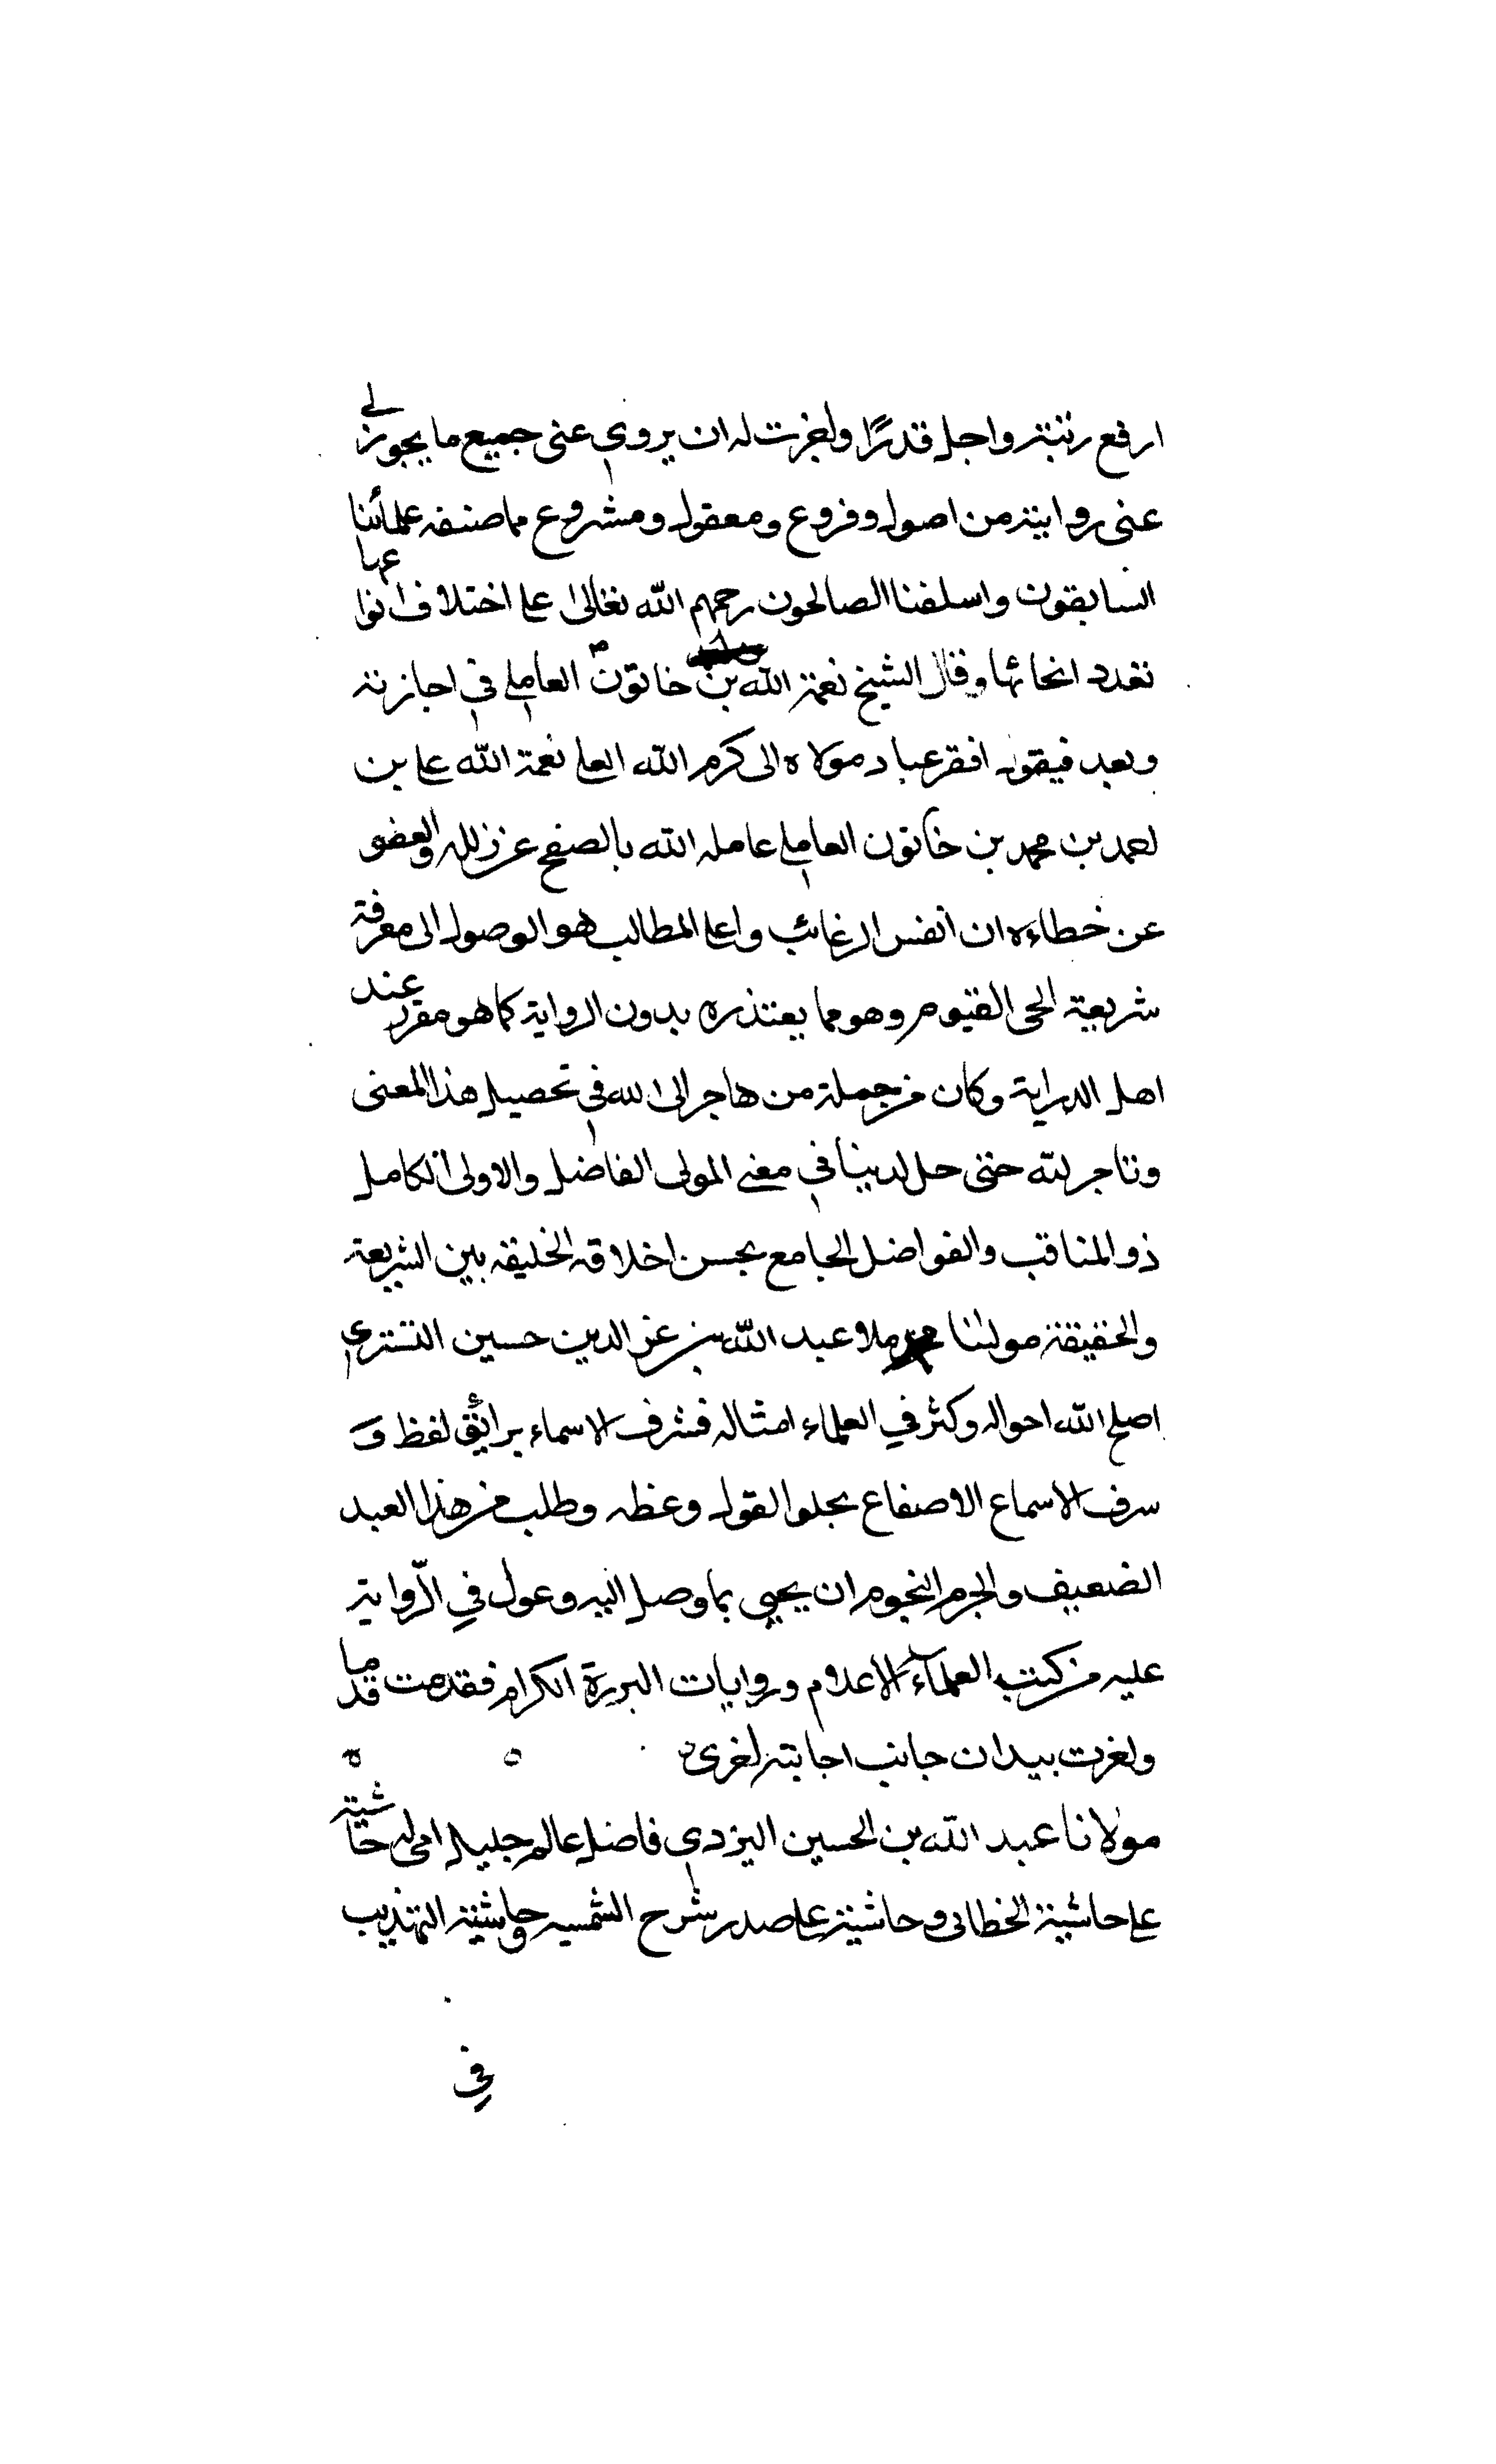 ارفع رتبته واجل قدرًا واجزت له ان يروى عنى جميع ما يجوز لے
عنى روايته من اصول وفروع ومعقول ومشروع مما صنفه علمائنا
السابقون واسلفنا الصالحون رحمهم الله تعالى على اختلاف انواعها
تعدد انحائها وقال الشيخ نعمة الله بن خاتون العاملى فى اجازته
وبعد فيقول افقر عباد مولاه الى كرم الله العلى نعمة الله على بن
احمد بن محمد بن خاتون العاملى عامله الله بالصفح عن زلله والعفو
عن خطاءه ان انفس الرغائب واعلى المطالب هو الوصول الى معرفة
شريعة الحى القيوم وهو مما يعتذره بدون الرواية كما هو مقرر عند
اهل الدراية وكان من جملة من هاجر الى الله فى تحصيل هذا المعنى
وتاجر لله حتى حل لدينا فى مغنے المولى الفاضل والاولى الكامل
ذو المناقب والفواضل الجامع بحسن اخلاقه الخليقه بين الشريعة
والحقيقة مولٰنا ملا عبد الله بن عز الدين حسين التسترى
اصلح الله احواله وكثر في العلماء امثاله فشرف الاسماء برائق لفظ و
سرف الاسماع الاصفاع بحلو القول وعظه وطلب من هذا العبد
الضعيف والجرم النجوم ان يجيى بما وصل اليه وعول في الرّواية
عليه من كتب العلماء الاعلام وروايات البررة الكرام فقدمت قدما
واخرت بيد ان جانب اجابته اخرى
مولانا عبد الله بن الحسين اليزدى فاضل عالم جليل امى له حاشية
على حاشية الخطائى وحاشية على صدر شرح الشمسيه وحاشية التهذيب
فى